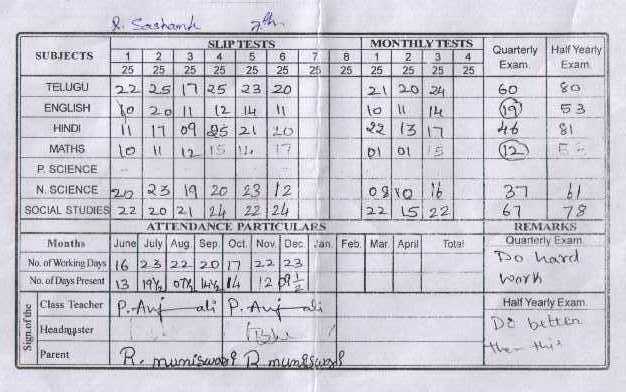 S. Sashank 7th.
SUBJECTS SLIP TESTS MONTHLY TESTS Quarterly Exam. Half Yearly Exam.
1 2 3 4 5 6 7 8 1 2 3 4
25 25 25 25 25 25 25 25 25 25 25 25
TELUGU 22 25 17 25 23 20 21 20 24 60 80
ENGLISH 10 20 11 12 14 11 10 11 14 19 53
HINDI 11 17 09 25 21 20 22 13 17 46 81
MATHS 10 11 12 15 14 17 01 01 15 12
P. SCIENCE
N. SCIENCE 20 23 19 20 23 12 08 10 16 37 61
SOCIAL STUDIES 22 20 21 24 22 24 22 15 22 67 78
ATTENDANCE PARTICULARS REMARKS
Months June July Aug. Sep. Oct. Nov. Dec. Jan. Feb. Mar. April Total Quarterly Exam.
No. of Working Days 16 23 22 20 17 22 23 Do hard
No. of Days Present 13 19½ 07½ 14½ 14 12 09½ work
Sign.of the Class Teacher P. Anjali P. Anjali Half Yearly Exam.
Headmaster Do better
Parent R. muniswarl R muniswarl then this